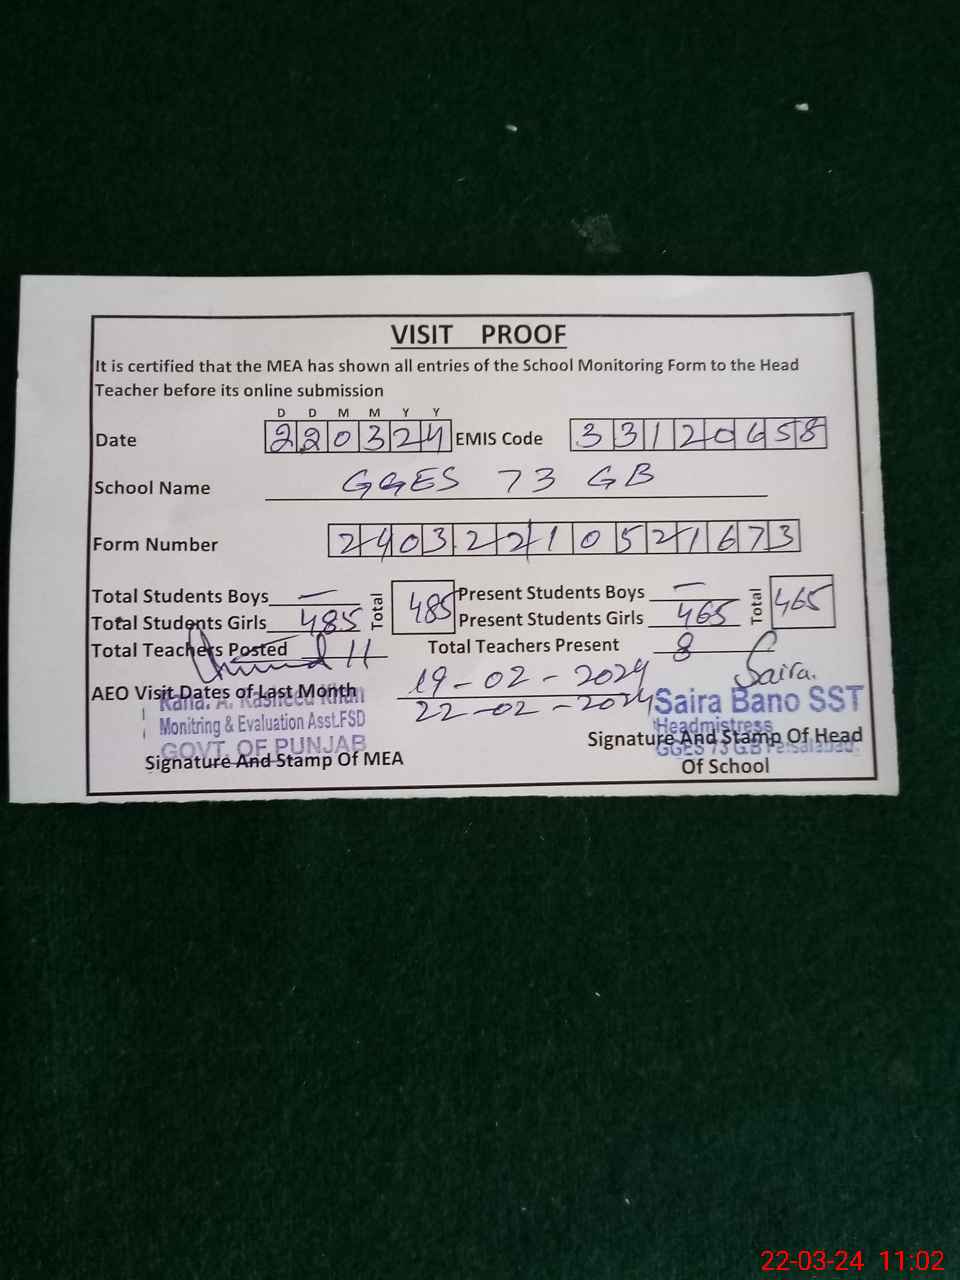 VISIT PROOF
It is certified that the MEA has shown all entries of the School Monitoring Form to the Head
Teacher before its online submission
D D M M Y Y
Date 220324 EMIS Code 33120658
School Name GGES 73 GB
Form Number 24032210521673
Total Students Boys — Total 485 Present Students Boys — Total 465
Total Students Girls 485 Present Students Girls 465
Total Teachers Posted 11 Total Teachers Present 8
Saira.
AEO Visit Dates of Last Month 19-02-2024
22-02-2024
Rana. A. Rasheed Khan
Monitring & Evaluation Asst.FSD
GOVT. OF PUNJAB
Signature And Stamp Of MEA
Saira Bano SST
Headmistress
GGES 73 G.B Faisalabad.
Signature And Stamp Of Head
Of School
22-03-24 11:02